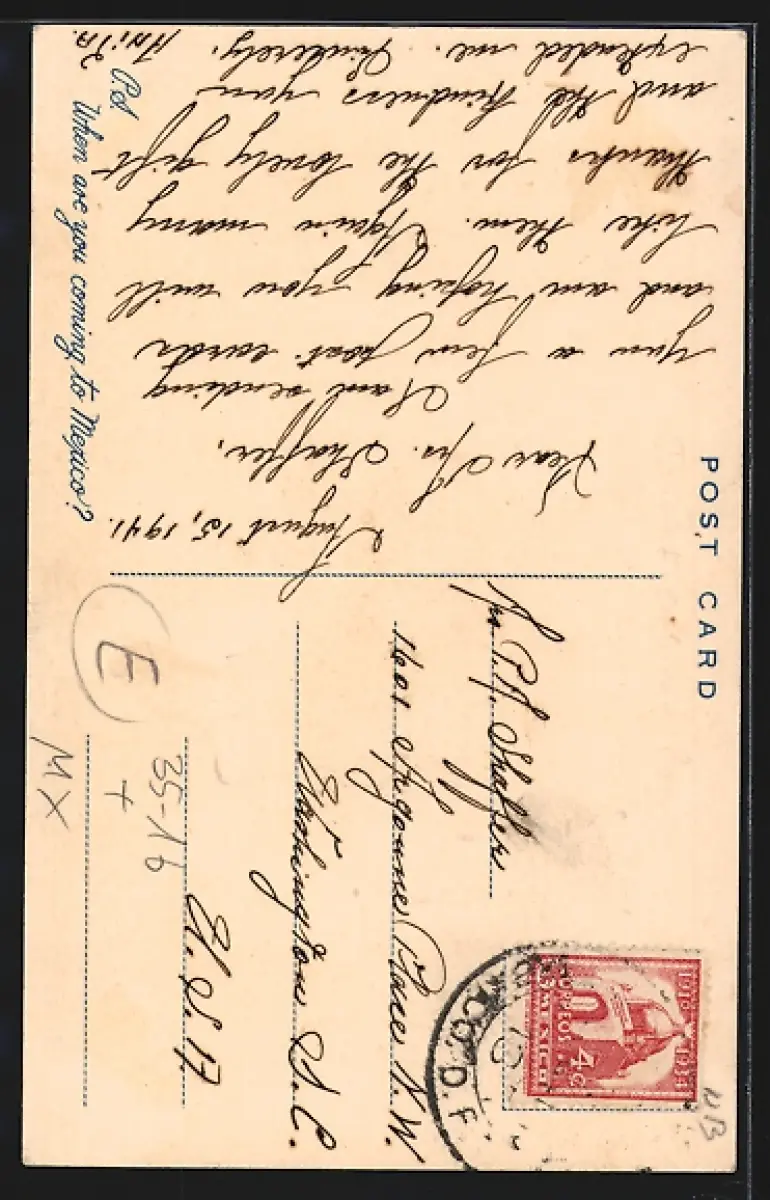 POST CARD
August 15, 1941.
Dear Mrs. Shaffer,
I am sending
you a few post cards
and am hoping you will
like them. Again many
thanks for the lovely gift
and the kindness you
extended me. Sincerely,
Anita.
P.S.
When are you coming to Mexico?
Mrs. P. J. Shaffer
1601 Argonne Place N.W.
Washington D.C.
U.S.A.
E
35-16
+
MX
NB
1910 1934
CORREOS
MEXICO
4c
MEXICO, D.F.